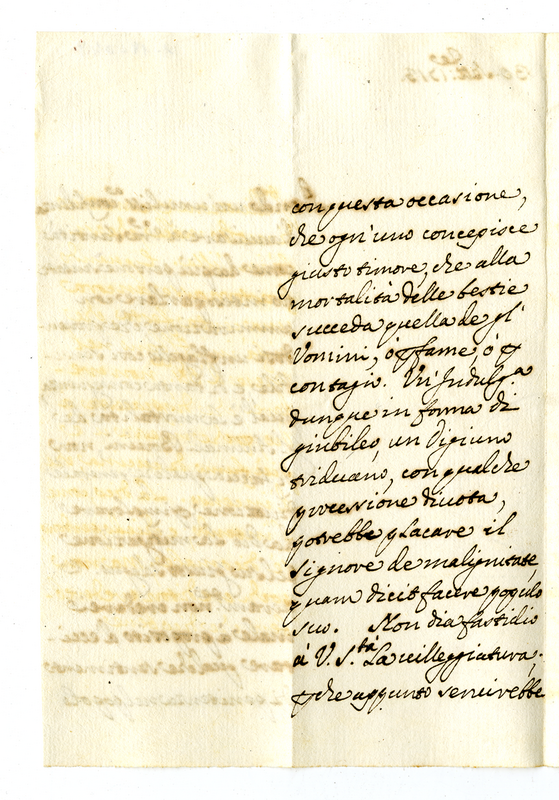 con questa occasione,
che ogn'uno concepisce
giusto timore, che alla
mortalità delle bestie
succeda quella de gl'
Vomini, ò p fame ò p
contagio. Un' Indulg.a
dunque in forma di
giubileo, un Digiuno
triduano, con qualche
processione divota,
potrebbe placare il
Signore de malignitate,
quam dicit facere populo
suo. Non dia fastidio
à V. S.tà La villeggiatura;
pche appunto servirebbe